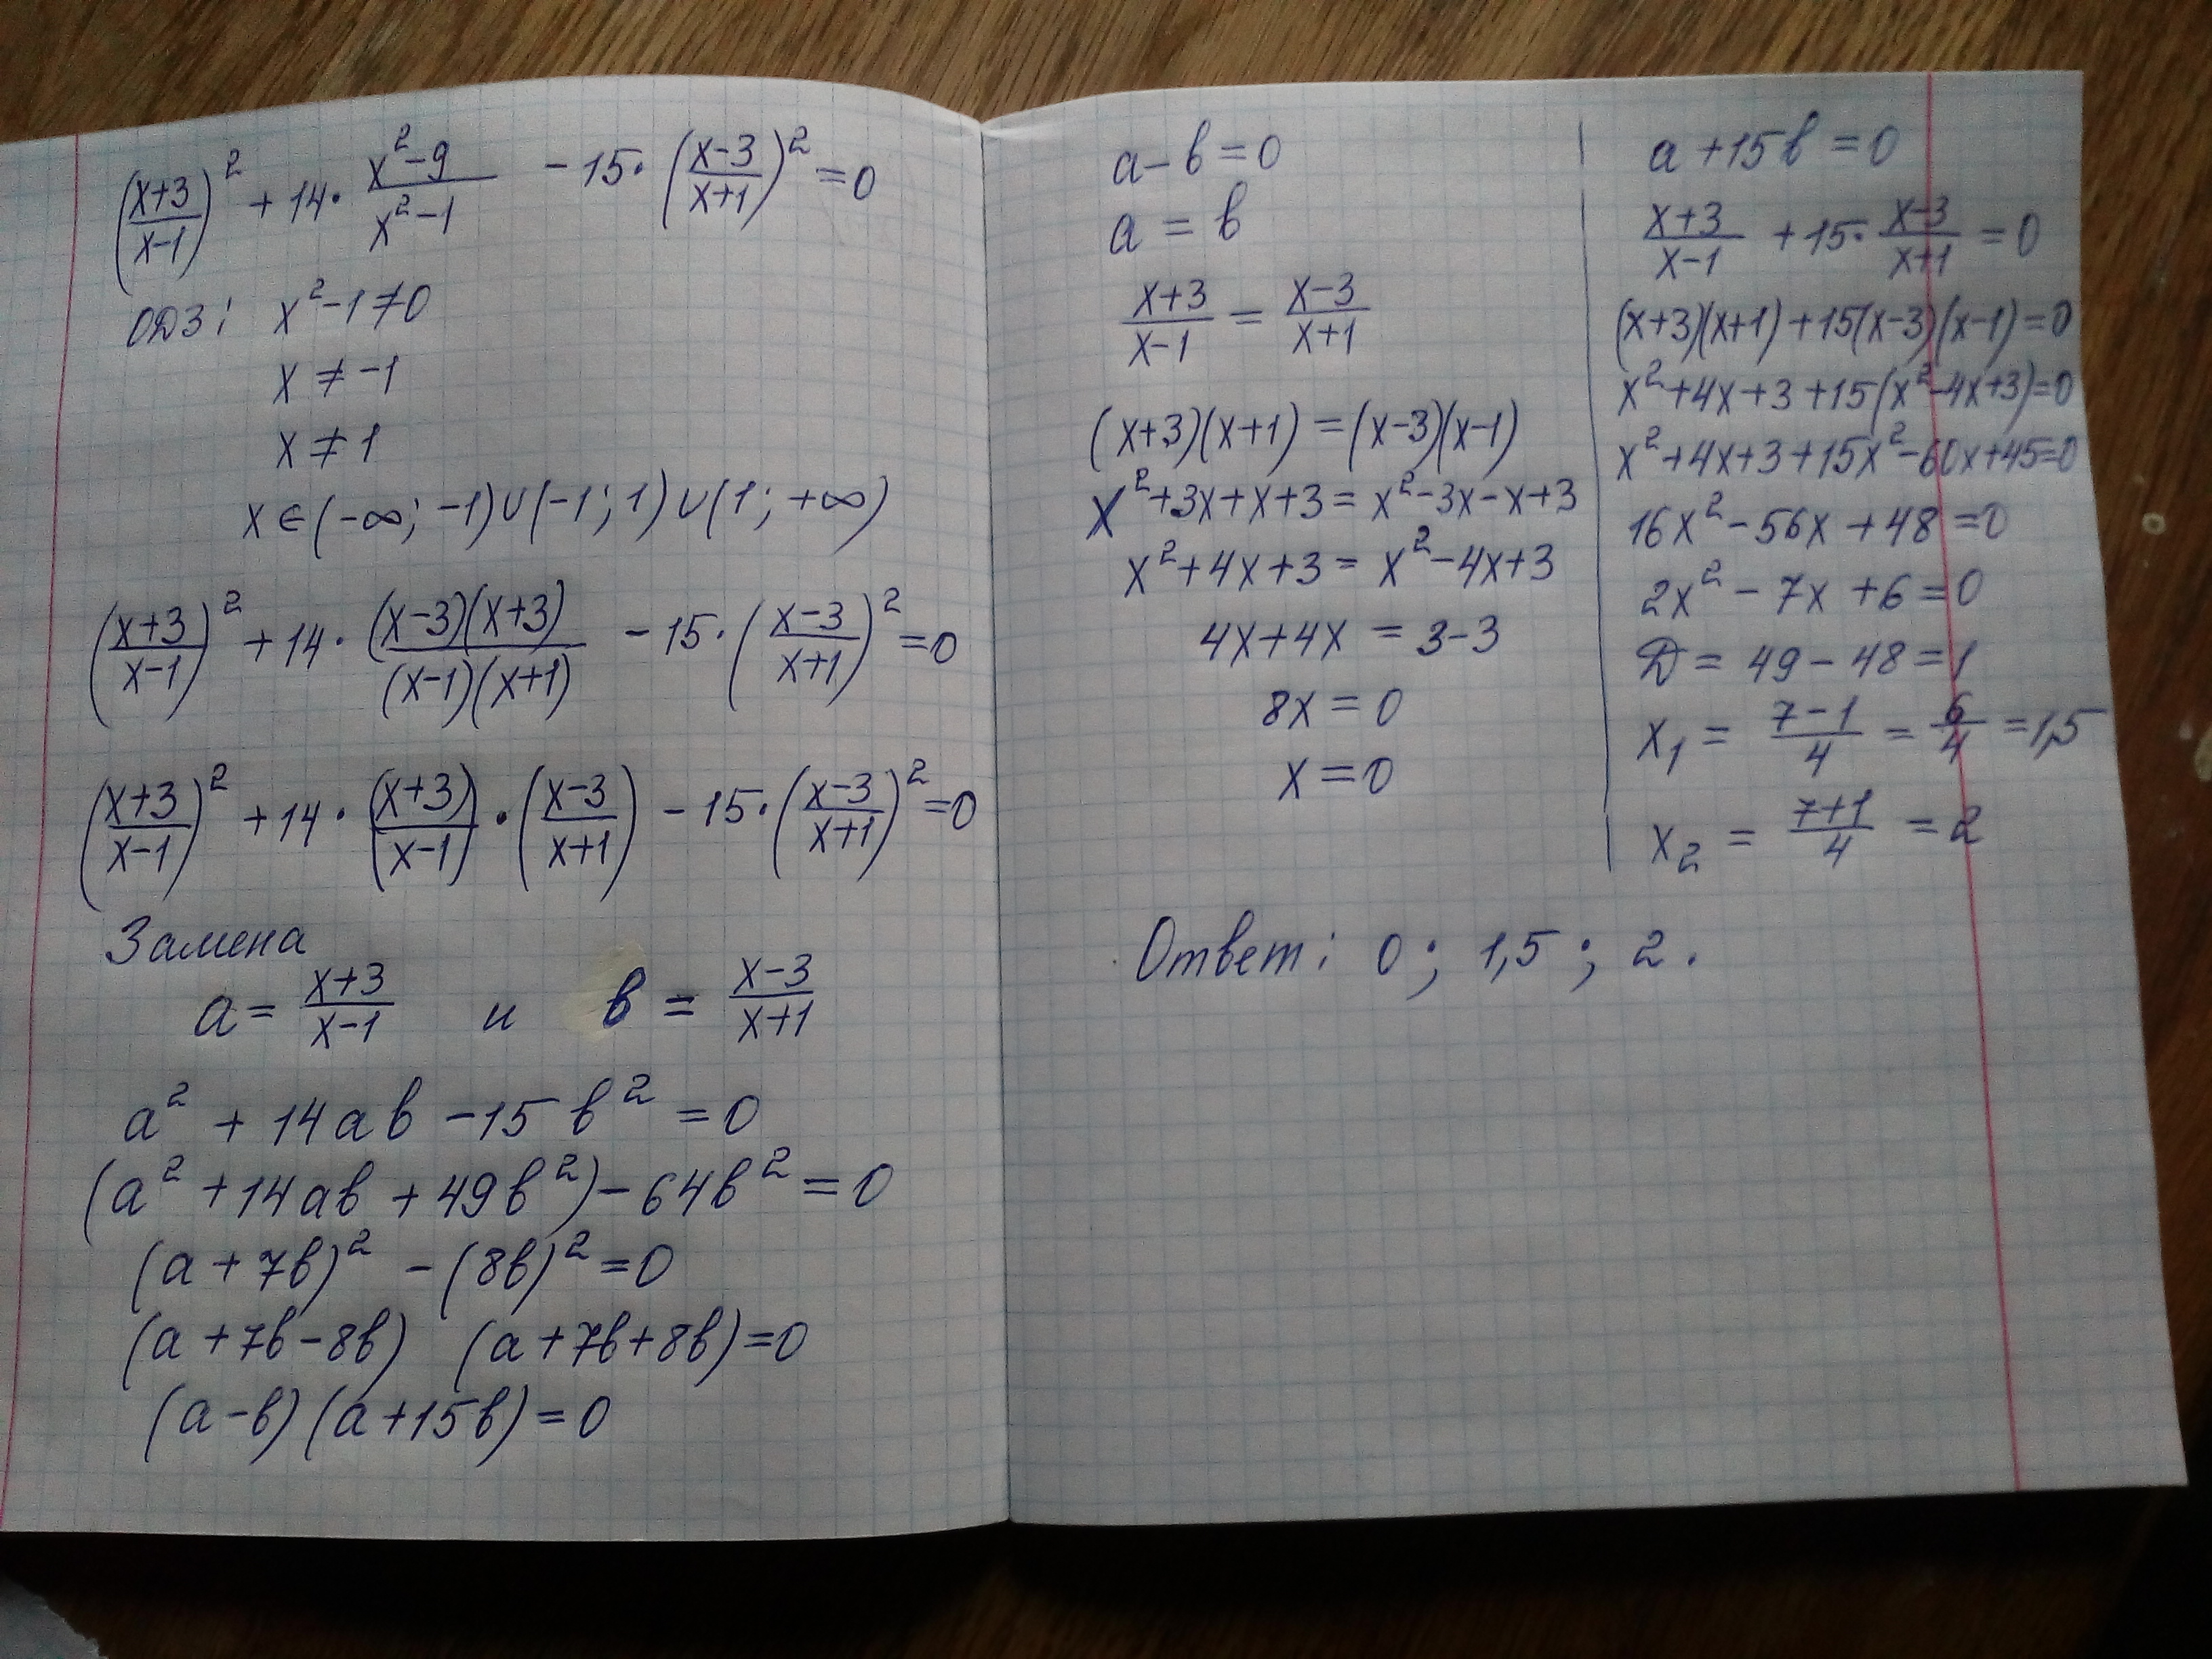 ((x+3)/(x-1))² + 14 · (x²-9)/(x²-1) - 15 · ((x-3)/(x+1))² = 0
ОДЗ: x²-1≠0
x ≠ -1
x ≠ 1
x ∈ (-∞; -1) ∪ (-1; 1) ∪ (1; +∞)
((x+3)/(x-1))² + 14 · ((x-3)(x+3))/((x-1)(x+1)) - 15 · ((x-3)/(x+1))² = 0
((x+3)/(x-1))² + 14 · ((x+3)/(x-1)) · ((x-3)/(x+1)) - 15 · ((x-3)/(x+1))² = 0
Замена
a = (x+3)/(x-1) и в = (x-3)/(x+1)
a² + 14aв - 15в² = 0
(a² + 14aв + 49в²) - 64в² = 0
(a + 7в)² - (8в)² = 0
(a + 7в - 8в) (a + 7в + 8в) = 0
(a - в) (a + 15в) = 0
a - в = 0
a = в
(x+3)/(x-1) = (x-3)/(x+1)
(x+3)(x+1) = (x-3)(x-1)
x²+3x+x+3 = x²-3x-x+3
x²+4x+3 = x²-4x+3
4x+4x = 3-3
8x = 0
x = 0
a + 15в = 0
(x+3)/(x-1) + 15 · (x-3)/(x+1) = 0
(x+3)(x+1) + 15(x-3)(x-1) = 0
x²+4x+3+15(x²-4x+3)=0
x²+4x+3+15x²-60x+45=0
16x² - 56x + 48 = 0
2x² - 7x + 6 = 0
D = 49 - 48 = 1
x₁ = (7-1)/4 = 6/4 = 1,5
x₂ = (7+1)/4 = 2
Ответ: 0; 1,5; 2.